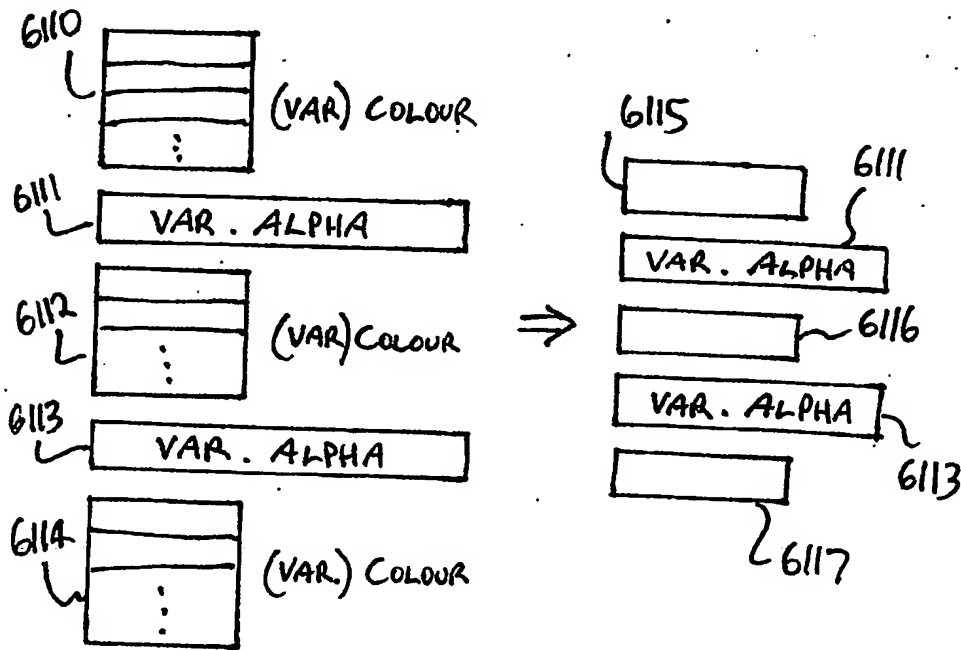 6110
(VAR) COLOUR
6111
VAR. ALPHA
6112
(VAR) COLOUR
6113
VAR. ALPHA
6114
(VAR.) COLOUR
⇒
6115
6111
VAR. ALPHA
6116
VAR. ALPHA
6113
6117